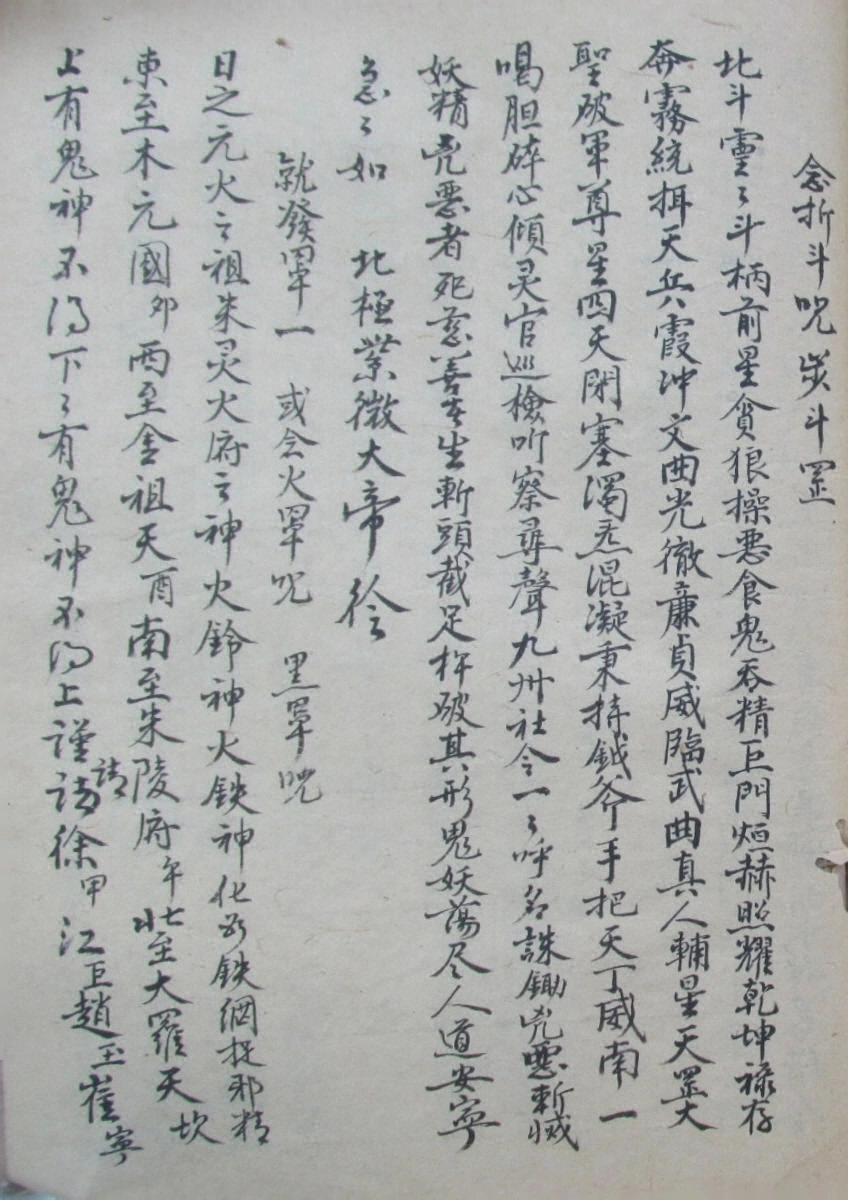 念折斗咒炁斗罡
北斗靈〻斗柄前星貪狼操悪食鬼吞精巨門烜赫照耀乾坤禄存
奔霧統揖天兵霞沖文曲光徹亷貞威臨武曲真人輔星天罡大
聖破軍尊星四天閉塞濁炁混凝秉持鉞斧手把天丁威南一
喝胆碎心傾灵官巡檢听察尋聲九州社令一〻呼名誅鋤兇惡斬滅
妖精兇惡者死慈善者生斬頭截足粹破其形鬼妖蕩尽人道安寧
急〻如 北極紫微大帝律令
就發罩一 或念火罩咒 黑罩咒
日之元火之祖朱灵火府之神火鈴神火鉄神化為鉄網捉邪精
東至木元國卯西至金祖天酉南至朱陵府午北至大羅天坎
上有鬼神不得下〻有鬼神不得上謹請徐甲江巨趙玉崔寧
請